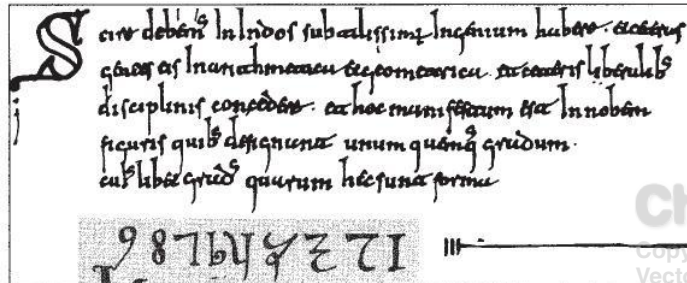 Scire debem' In Indos subtilissimū Ingenium habere · et ceteras
gentes eis In arithmetica et geometrica · et ceteris liberalib'
disciplinis concedere · et hoc manifestum est In nobem
figuris quib' designant unum quemq' gradum ·
cui'libet grad' quarum hec sunt forma
9 8 7 6 5 4 3 2 1
Copy
Vect